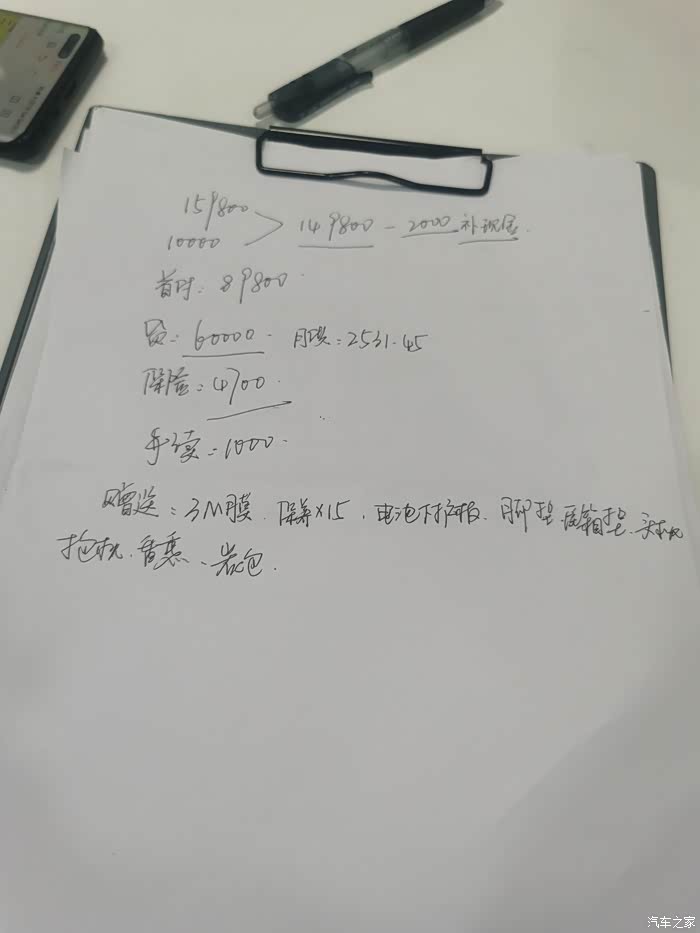 159800
10000 > 149800 - 2000 补现金.
首付: 89800.
贷: 60000. 月供: 2531.45
保险: 4700.
手续: 1000.
赠送: 3M膜. 保养×15. 电池下护板. 脚垫. 后箱垫. 头枕
抱枕. 香薰、岩包.
汽车之家